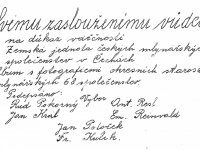 Svému zaslouženímu vůdci
na důkaz vděčnosti
Zemská jednota českých mlynářských
společenstev v Čechách
s fotografiemi okresních starost
mlynářských 68 společenstev.
Podepsáno: Výbor
Rud. Pokorný Ant. Resl
Jan Krul Em. Reinwald
Jan Poláček
Fr. Kulík.